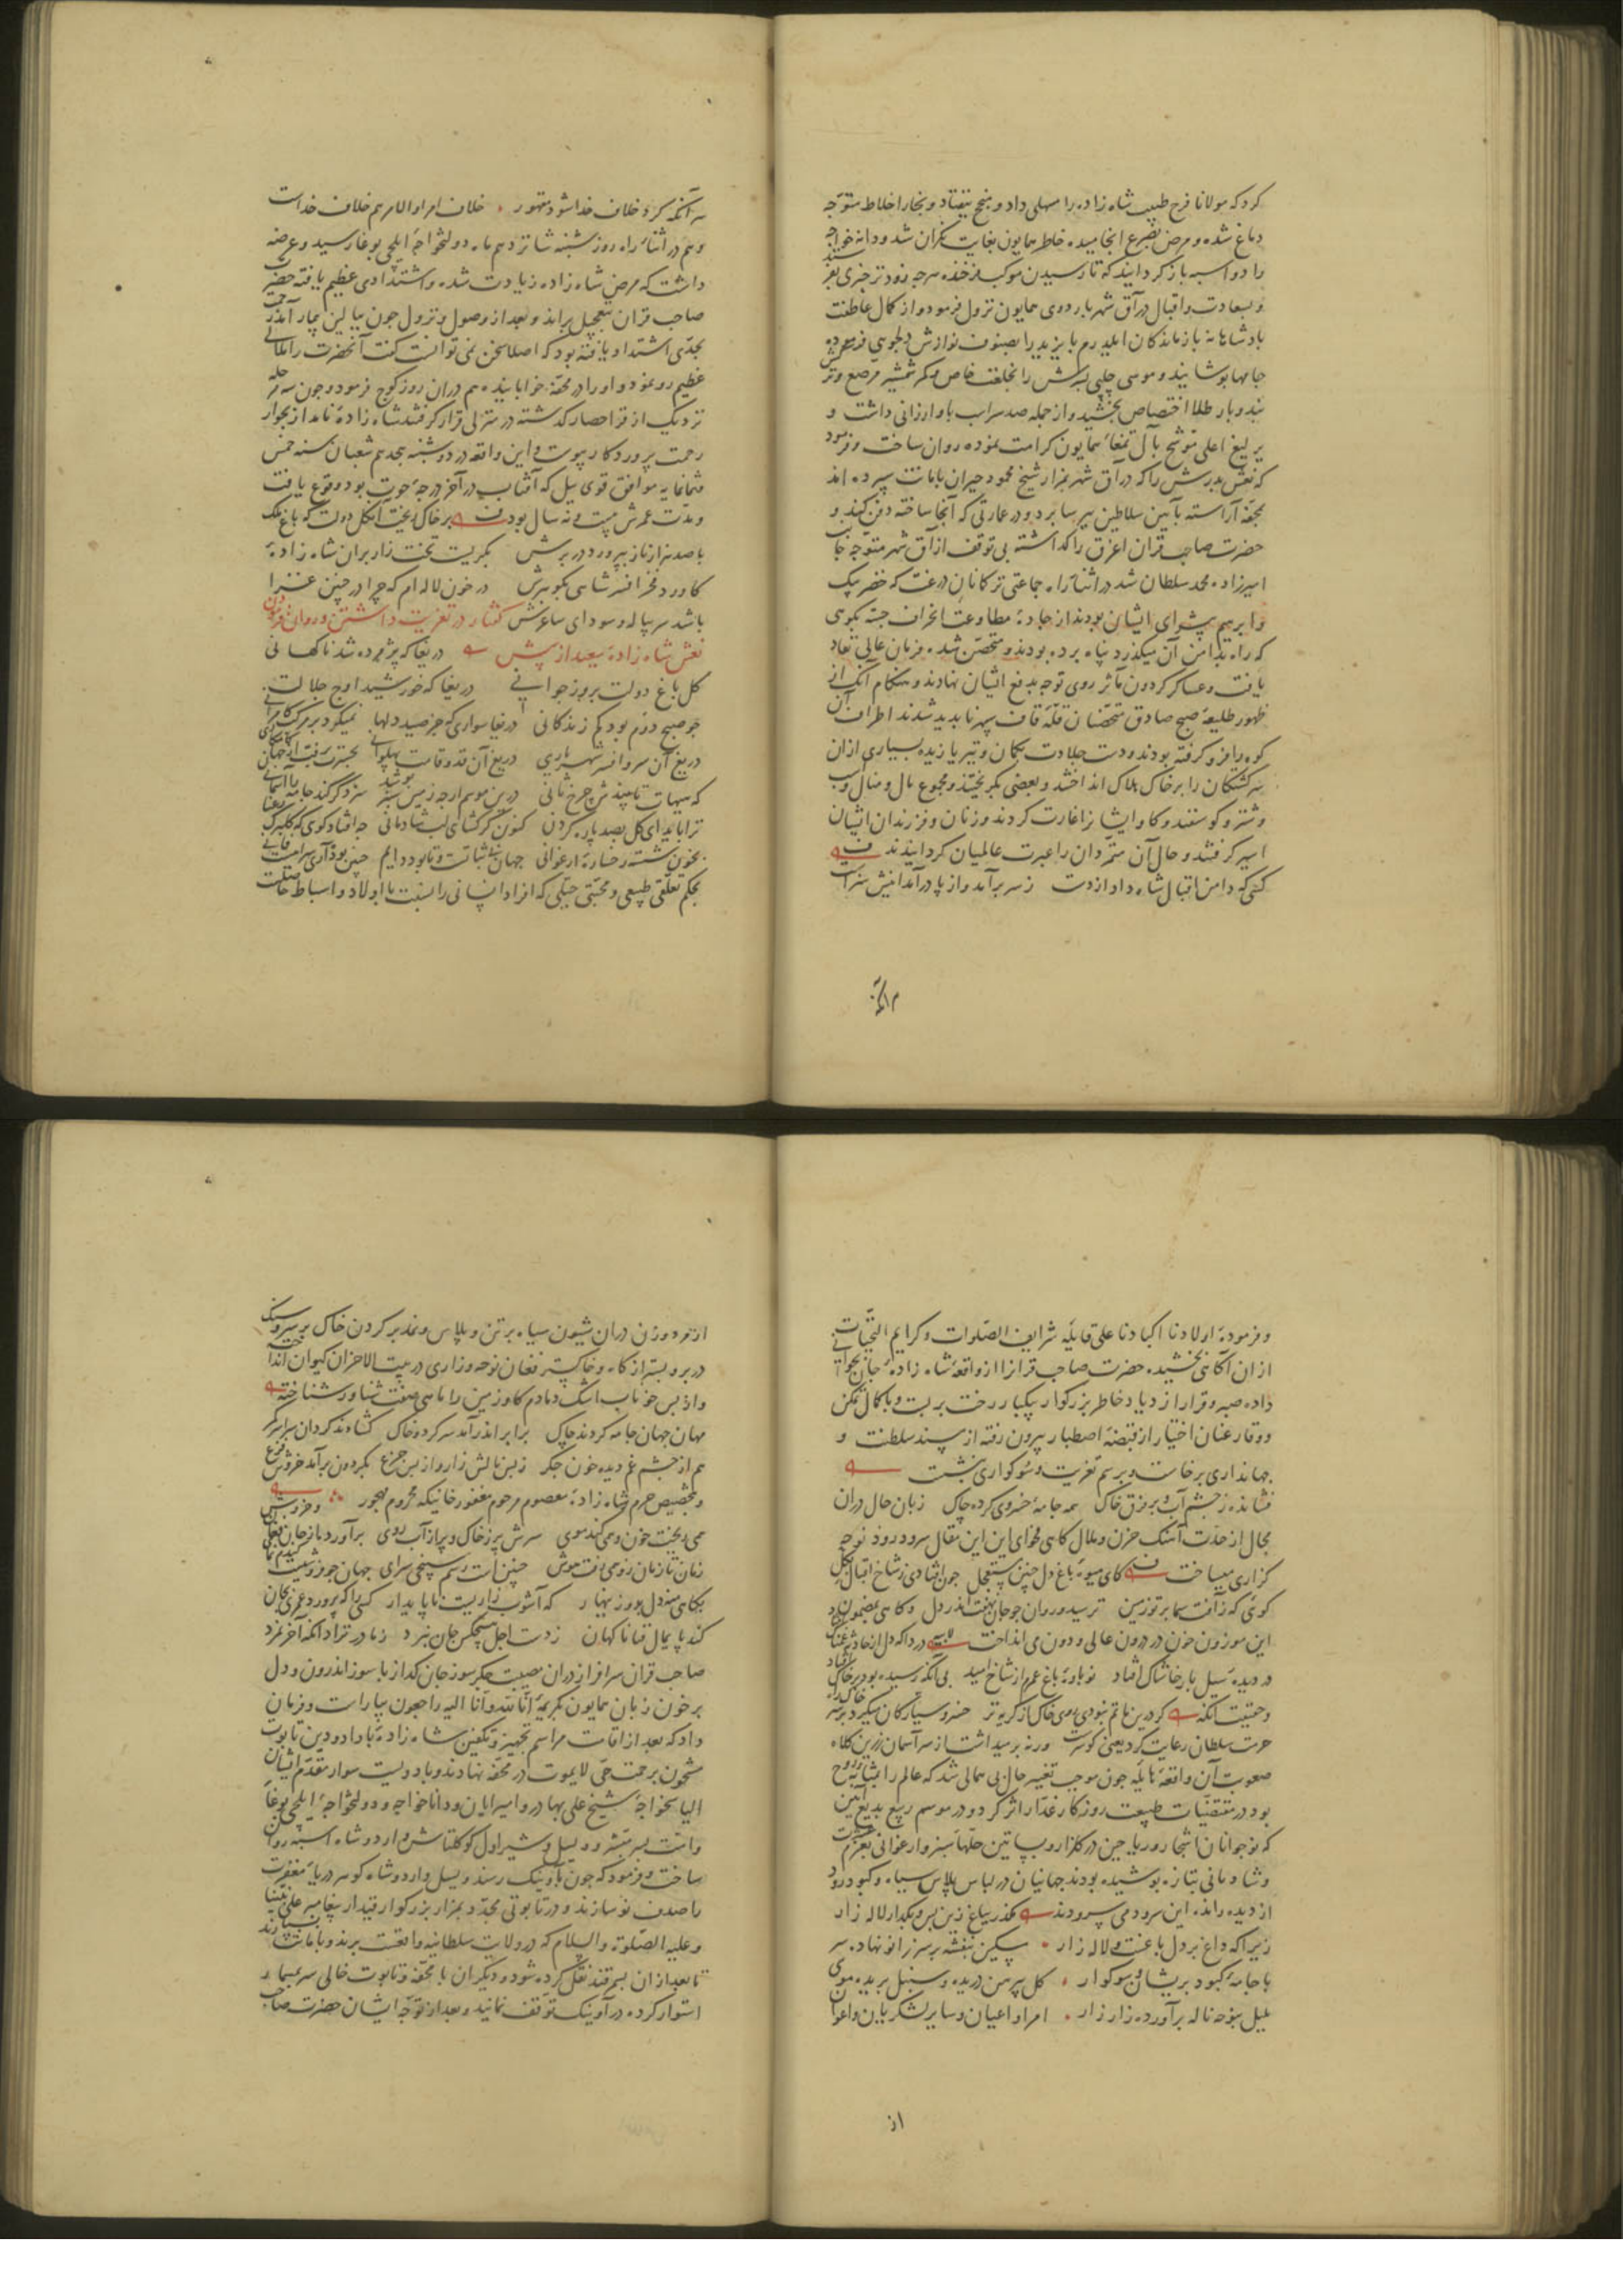 کرد که مولانا فرخ طبیب شاه زاده را مسهلی داد و بنج بیفتاد و بخار اخلاط متوجه
دماغ شده و مرض بصرع انجامیده خاطر همایون بغایت نکران شد و دانه خواجه
را دو اسبه باز کردانید که تا رسیدن موکب فرخنده هرچه زودتر خبری بفرستد
و بسعادت و اقبال در آق شهر باردوی همایون نزول فرمود و از کمال عاطفت
بادشاهانه بازماندکان ایلدرم بایزید را بصنوف نوازش و دلجوی فرموده
جامها بوشانید و موسی چلبی بسرش را بخلعت خاص و کمر شمشیر مرصع و ترکش
بند و بار طلا اختصاص بخشید و از جمله صد سر اسب باو ارزانی داشت و
یرلیغ اعلی موشح بآل تمغاء همایون کرامت نموده روان ساخت و فرمود
که نعش بدرش را که در آق شهر بمزار شیخ محمود حیران بامانت سپرده اند
بمحفه آراسته بآیین سلاطین ببرسا برد و در عمارتی که آنجا ساخته دفن کنند و
حضرت صاحب قران اغرق را کذاشته بی توقف از آق شهر متوجه جانب
امیرزاده محمد سلطان شد در اثناء راه جماعتی ترکمانان درغت که خضر بیک
و ابرهیم بیشوای ایشان بودند از جادۀ مطاوعت انحراف جسته بکوهی
که راه بدامن آن میکذرد پناه برده بودند و متحصن شده فرمان عالی نفاذ
یافت و عساکر کردون مآثر روی توجه بدفع ایشان نهادند و هنکام آنک از
ظهور طلیعۀ صبح صادق متحصنان قلۀ قاف سپهر نابدید شدند اطراف آن
کوه را فرو کرفته بودند و دست جلادت بکمان و تیر یازیده بسیاری از آن
سرکشتکان را بر خاک هلاک انداختند و بعضی بکریختند و مجموع مال و منال و اسب
و شتر و کوسفند و کاو ایشانرا غارت کردند و زنان و فرزندان ایشان
اسیر کرفتند و حال آن متمردان را عبرت عالمیان کردانیدند
کسی که دامن اقبال شاه داد از دست ز سر برآمد و از پا درآمد اینش سزاست
هر آنکه کرد خلاف خدا شود مقهور خلاف امر اولو الامر هم خلاف خداست
و هم در اثناء راه روز شنبه شانزدهم ماه دولتخواجۀ ایلچی بوغا رسید و عرضه
داشت که مرض شاه زاده زیادت شده و اشتدادی عظیم یافته حضرت
صاحب قران بتعجیل براند و بعد از وصول و نزول جون ببالین بیمار آمد مرض
بحدی اشتداد یافته بود که اصلا سخن نمی توانست کفت آنحضرت را ملالی
عظیم رو نمود و او را در محفه خوابانیده هم دران روز کوچ فرمود و جون سه مرحله
نزدیک از قراحصار کذشته در منزلی قرار کرفتند شاه زادۀ نامدار بجوار
رحمت پروردکار پیوست و این واقعه در دوشنبه هجدهم شعبان سنه خمس
و ثمانمایه موافق قوی ییل که آفتاب در آخر درجۀ حوت بود وقوع یافت
و مدت عمرش بیست و نه سال بود بر خاک ریخت آن کل دولت که باغ ملک
با صد هزار ناز بپرورد در برش بکریست تخت زار بران شاه زادۀ
کاورد فخر افسر شاهی بکوهرش در خون لاله ام که چرا در چنین عزا
باشد سر پیاله و سودای ساغرش کفتار در تعزیت داشتن و روان فرمودن
نعش شاه زادۀ سعید از پیش دریغا که پژمرده شد ناکهانی
کل باغ دولت بروز جوانی دریغا که خورشید اوج جلالت
جو صبح دوم بود کم زندکانی دریغا سواری که جز صید دلها نمیکرد بر مرکب کامرانی
دریغ آن سر و افسر شهریاری دریغ آن قد و قامت بهلوانی
که هیهات تا بیند چرخ ثانی درین موسم ار جه زمین سبز پوشد سزد کر کند جامه را آسمانی
ترا باید ای کل بصد پاره کردن کنون کر کشای لب شادمانی جه افتاد کوی که کلبرک رعنا
بخون شسته رخسارۀ ارغوانی جهان بی ثباتست تا بود دایم چنین بود آری سرامیست فانی
بحکم تعلقی طبیعی و محبتی جبلی که افراد انسانی را نسبت با اولاد و اسباط حاصلست
و فرمودۀ اولادنا اکبادنا علی قایله شرایف الصلوات و کرایم التحیات
از ان آکاهی بخشیده حضرت صاحب قرانرا از واقعۀ شاه زادۀ جان بجوانی
داده صبر و قرار از دیار خاطر بزرکوار یکبار رخت بربست و با کمال تمکن
و وقار عنان اختیار از قبضۀ اصطبار بیرون رفته از مسند سلطنت و
جهانداری برخاست و برسم تعزیت و سوکواری نشست
فشانده ز چشم آب و بر فرق خاک همه جامۀ خسروی کرده چاک زبان حال دران
مجال از حدت آهنک حزن و ملال کاهی فحوای این این مقال سرود رود نوحه
کزاری میساخت کای میوۀ باغ دل چنین مستعجل جون اوفتادی ز شاخ اقبال بکل
کوی که ز آفت سما بر تو زمین ترسید و روان جو جان نهفت اندر دل و کاهی مضمون
این موزون خون در درون عالی و دون می انداخت دردا که دل از حادثه غمناک افتاد
در دیده سیل بار خاشاک افتاد نوباوۀ باغ عمرم از شاخ امید بی آنکه رسیده بود بر خاک
و حقیقت آنکه کر درین ماتم نبودی روی خاک از کریه تر خسرو سیارکان میکرد بر سر خاک راه
حرمت سلطان رعایت کرد یعنی کوسرست ورنه بر میداشت از سر آسمان زرین کلاه
صعوبت آن واقعۀ هایله جون موجب تغییر حال بی همالی شد که عالم را بمثابه روح
بود در مقتضیات طبیعت روزکار غدار اثر کرد و در موسم ربیع بدیع آیین
که نوجوانان اشجار و ریاحین در کلزار و بساتین حلهاء سبز و ارغوانی بعزم عشرت
و شادمانی بتازه بوشیده بودند جهانیان در لباس پلاس سیاه و کبود رود
از دیده رانده این سرود می سرودند مکذر بباغ زین پس و مکذار لاله زار
زیرا که داغ بر دل باغست و لاله زار مسکین بنفشه بر سر زانو نهاده سر
با جامۀ کبود بریشان و سوکوار کل پیرهن دریده و سنبل بریده موی
بلبل بنوحه ناله برآورده زار زار امرا و اعیان و سایر لشکریان و اعوان
از
از مرد و زن دران شیون سیاه بر تن و پلاس و نمد بر کردن خاک بر سر و سنک
در بر و بستر از کاه و خاکستر فغان نوحه و زاری در بیت الاحزان کیوان انداخته
و از بس خوناب اشک دمادم کاو زمین را ماهی صفت شناور شناخته
مهان جهان جامه کردند چاک برابر اندر آمد سر کرد و خاک کشادند کردان سراسر کمر
هم از چشم غمدیده خون جکر ز بس نالش زار و از بس جزع بکردون برآمد خروش و فزع
و بتخصیص حرم شاه زادۀ معصوم مرحوم مغفور خانیکه محروم مهجور
همی ریخت خون و همی کند موی سرش پر ز خاک و پر از آب روی برآورد باز
زمان تا زمان زو همی رفت هوش چنین است رسم سپنجی سرای
بکاهی منه دل بو روز بهار که آشوب زاریست ناپایدار کسی را که پرورد عمری بجان
کند پایمال فنا ناکهان ز دست اجل هیچکس جان نبرد نزاد ز مادر ترا آنکه آخر نمرد
صاحب قران سرافراز دران مصیبت جکرسوز جان کداز با سوز اندرون و دل
پر خون زبان همایون بکریمۀ انا لله و انا الیه راجعون بیاراست و فرمان
داد که بعد از اقامت مراسم تجهیز و تکفین شاه زادۀ با داد و دین تابوت
مشحون برحمت حی لا یموت در محفه نهادند و با دویست سوار مقدم ایشان
الیاس خواجه شیخ علی بهادر و امیر ایان و دانا خواجه و دولتخواجۀ ایلچی بوغا
ساخت و فرمود که جون بآونیک رسند و یسل و اردوشاه کوهر دریاء مغفرت
را صدف نو سازند و در تابوتی مجدد بمزار بزرکوار قیدار پیغامبر علی نبینا
و علیه الصلوة و السلام که در ولایت سلطانیه واقعست برند و بامانت بسپارند
تا بعد از ان بسمرقند نقل کرده شود و دیکران با محفه و تابوت خالی سر بمسمار
استوار کرده در آونیک توقف نمایند و بعد از توجه ایشان حضرت صاحب